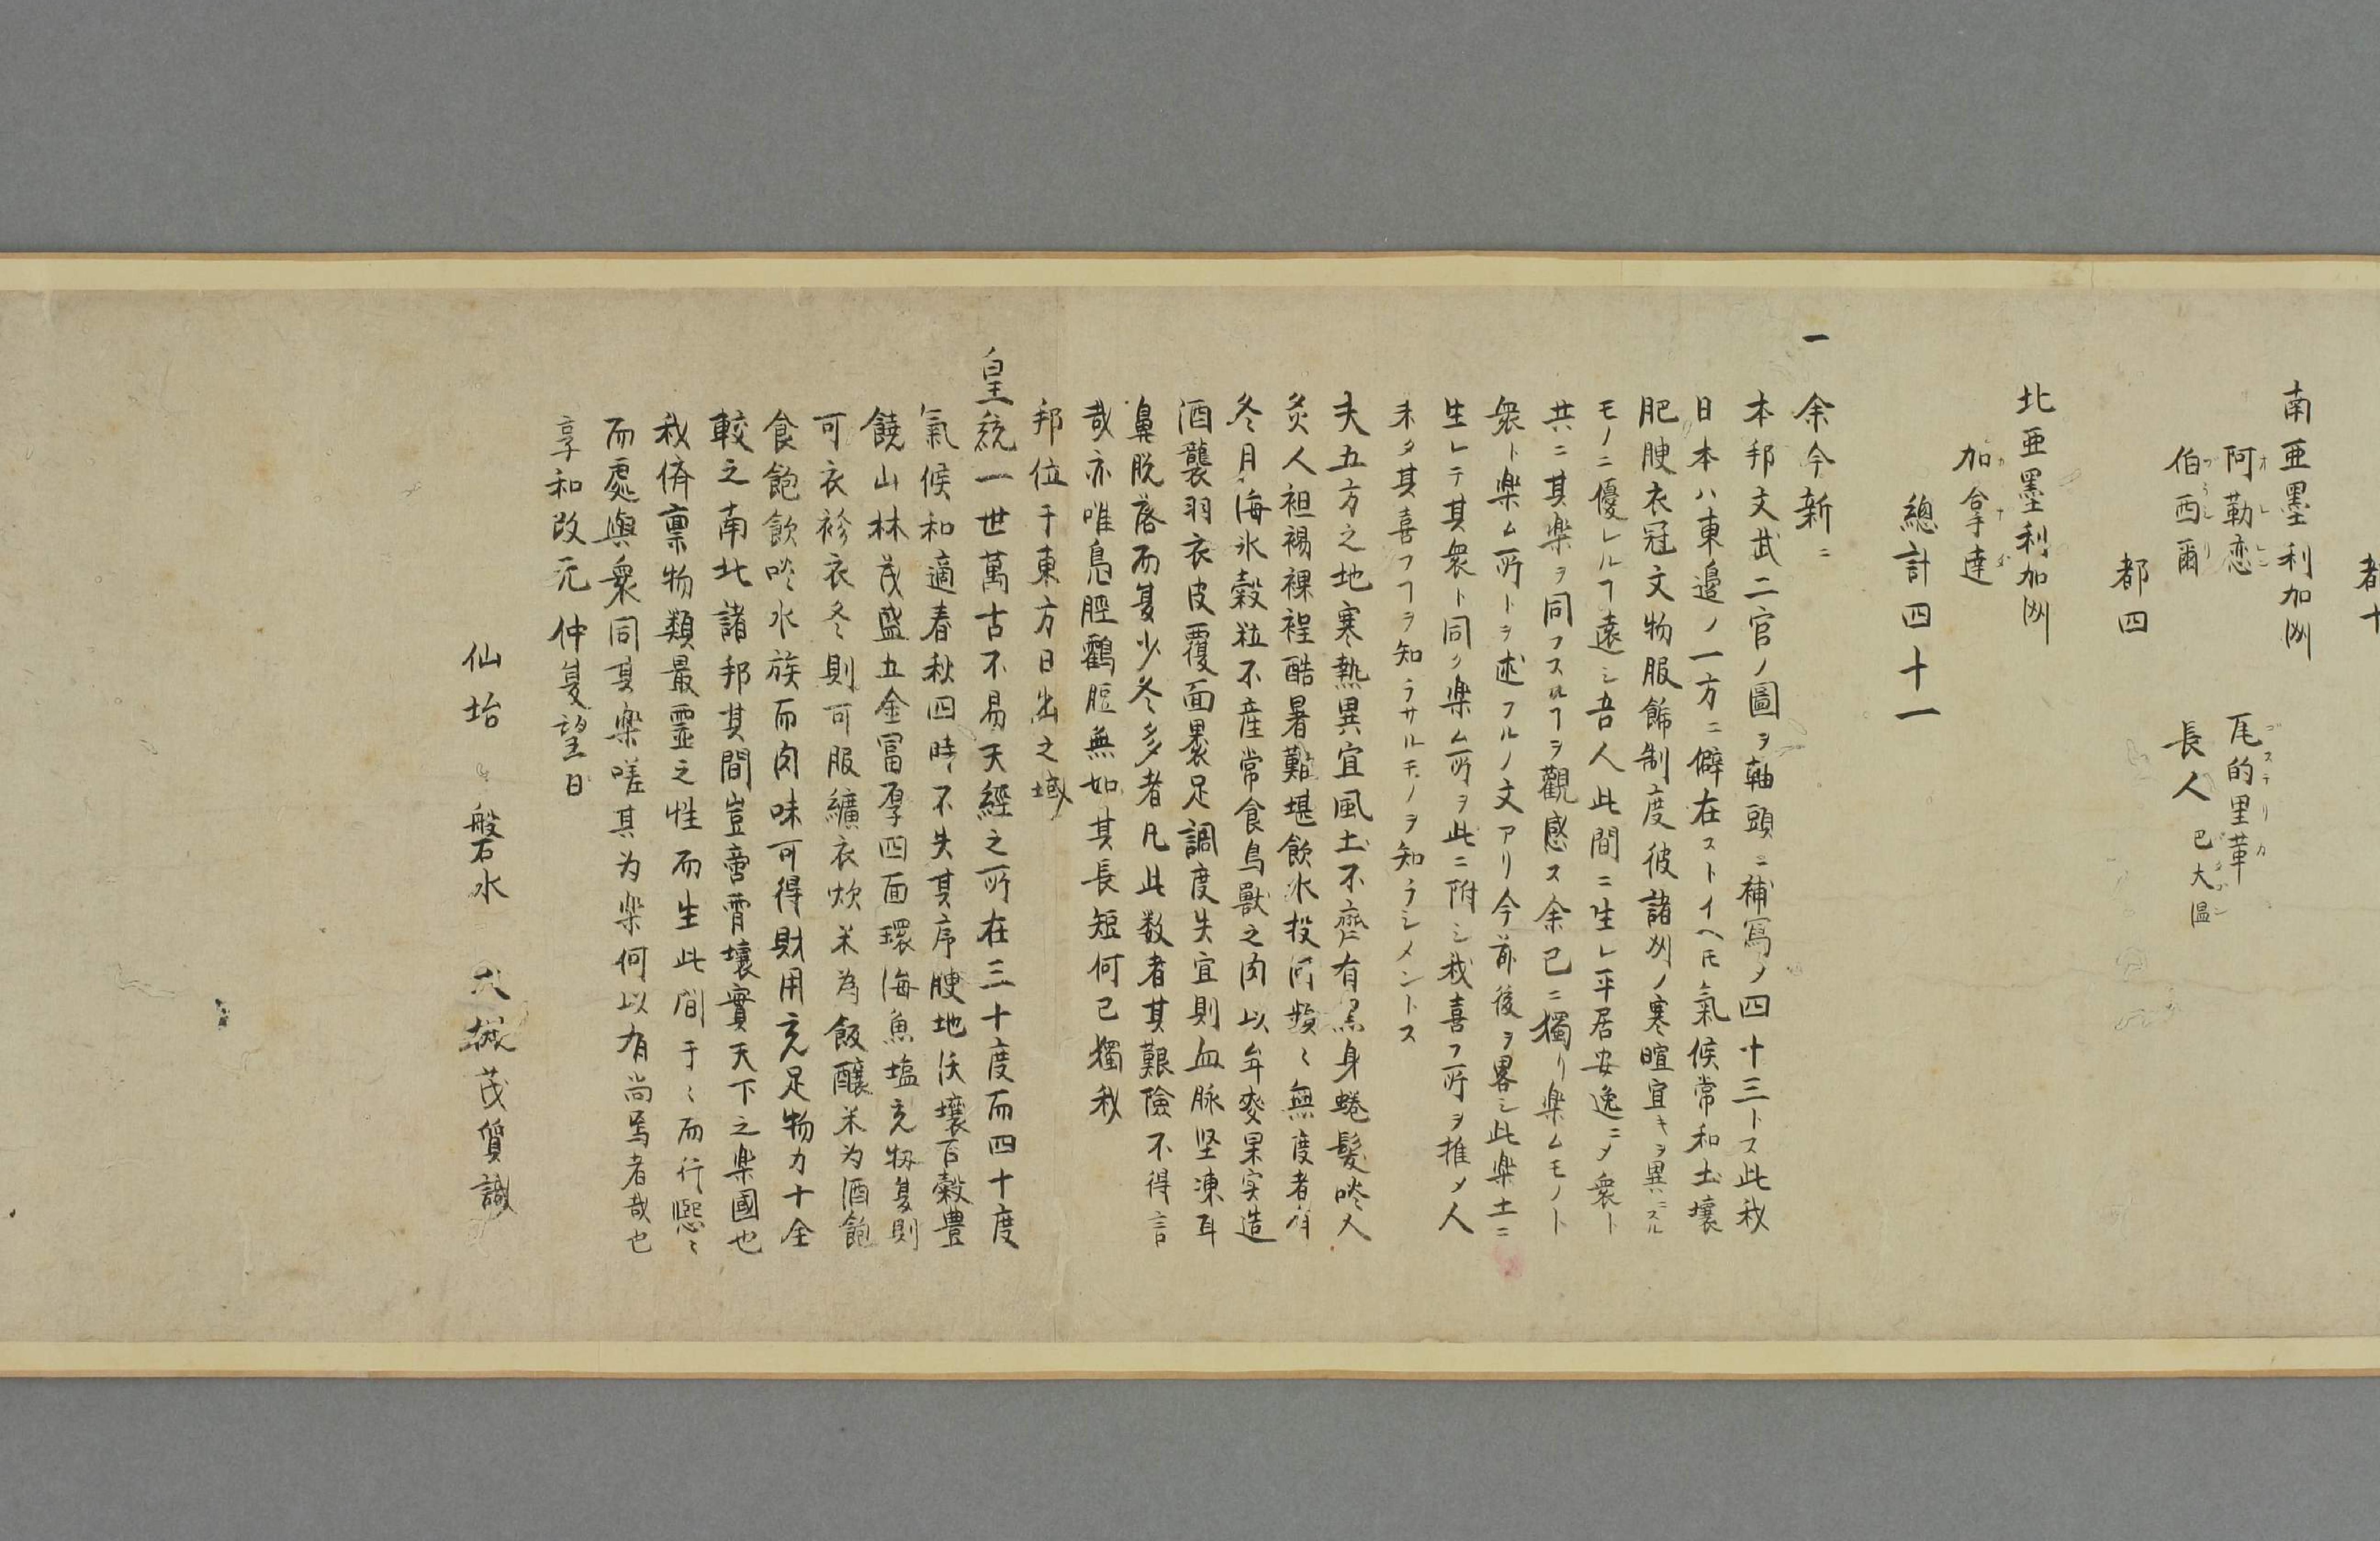 都十
南亜墨利加洲
阿勒恋 オレレン 瓦的里革 ゴステリカ
伯西爾 ブラシリ 長人 巴大温 バタゴン
都四
北亜墨利加洲
加拿達 カナダ
總計四十一
一 余今新ニ
本邦文武二官ノ圖ヲ軸頭ニ補寫ノ四十三トス此我
日本ハ東邉ノ一方ニ僻在ストイヘ𪜈氣候常和土壌
肥腴衣冠文物服飾制度彼諸刕ノ寒暄宜キヲ異ニスル
モノニ優レルヿ遠シ吾人此間ニ生レ平居安逸ニメ衆ト
共ニ其楽ヲ同フスルヿヲ觀感ス余已ニ獨リ楽ムモノト
衆ト楽ム所トヲ述フルノ文アリ今前後ヲ畧シ此楽土ニ
生レテ其衆ト同ク楽ム所ヲ此ニ附シ我喜フ所ヲ推メ人
未タ其喜フヿヲ知ラサルモノヲ知ラシメントス
夫五方之地寒熱異宜風土不齊有黒身蜷髪啖人
炙人袒裼裸裎酷暑難堪飲水投河頻〻無度者有
冬月海氷穀粒不産常食鳥獸之肉以牟麥果实造
酒襲羽衣皮覆面裹足調度失宜則血脉坚凍耳
鼻脱落而夏少冬多者凡此数者其艱險不得言
哉亦唯鳬脛鶴脰無如其長短何已獨我
邦位于東方日出之域
皇統一世萬古不易天經之所在三十度而四十度
氣候和適春秋四時不失其序腴地沃壌百穀豊
饒山林茂盛五金冨厚四面環海魚塩充牣夏則
可衣袗衣冬則可服纊衣炊米為飯醸米为酒飽
食飽飲啖水族而肉味可得財用充足物力十全
較之南北諸邦其間豈啻霄壌實天下之楽國也
我儕禀物類最靈之性而生此间于〻而行熈〻
而處與衆同其楽嗟其为楽何以有尚焉者哉也
享和改元仲夏望日
仙坮 磐水 大槻茂質識